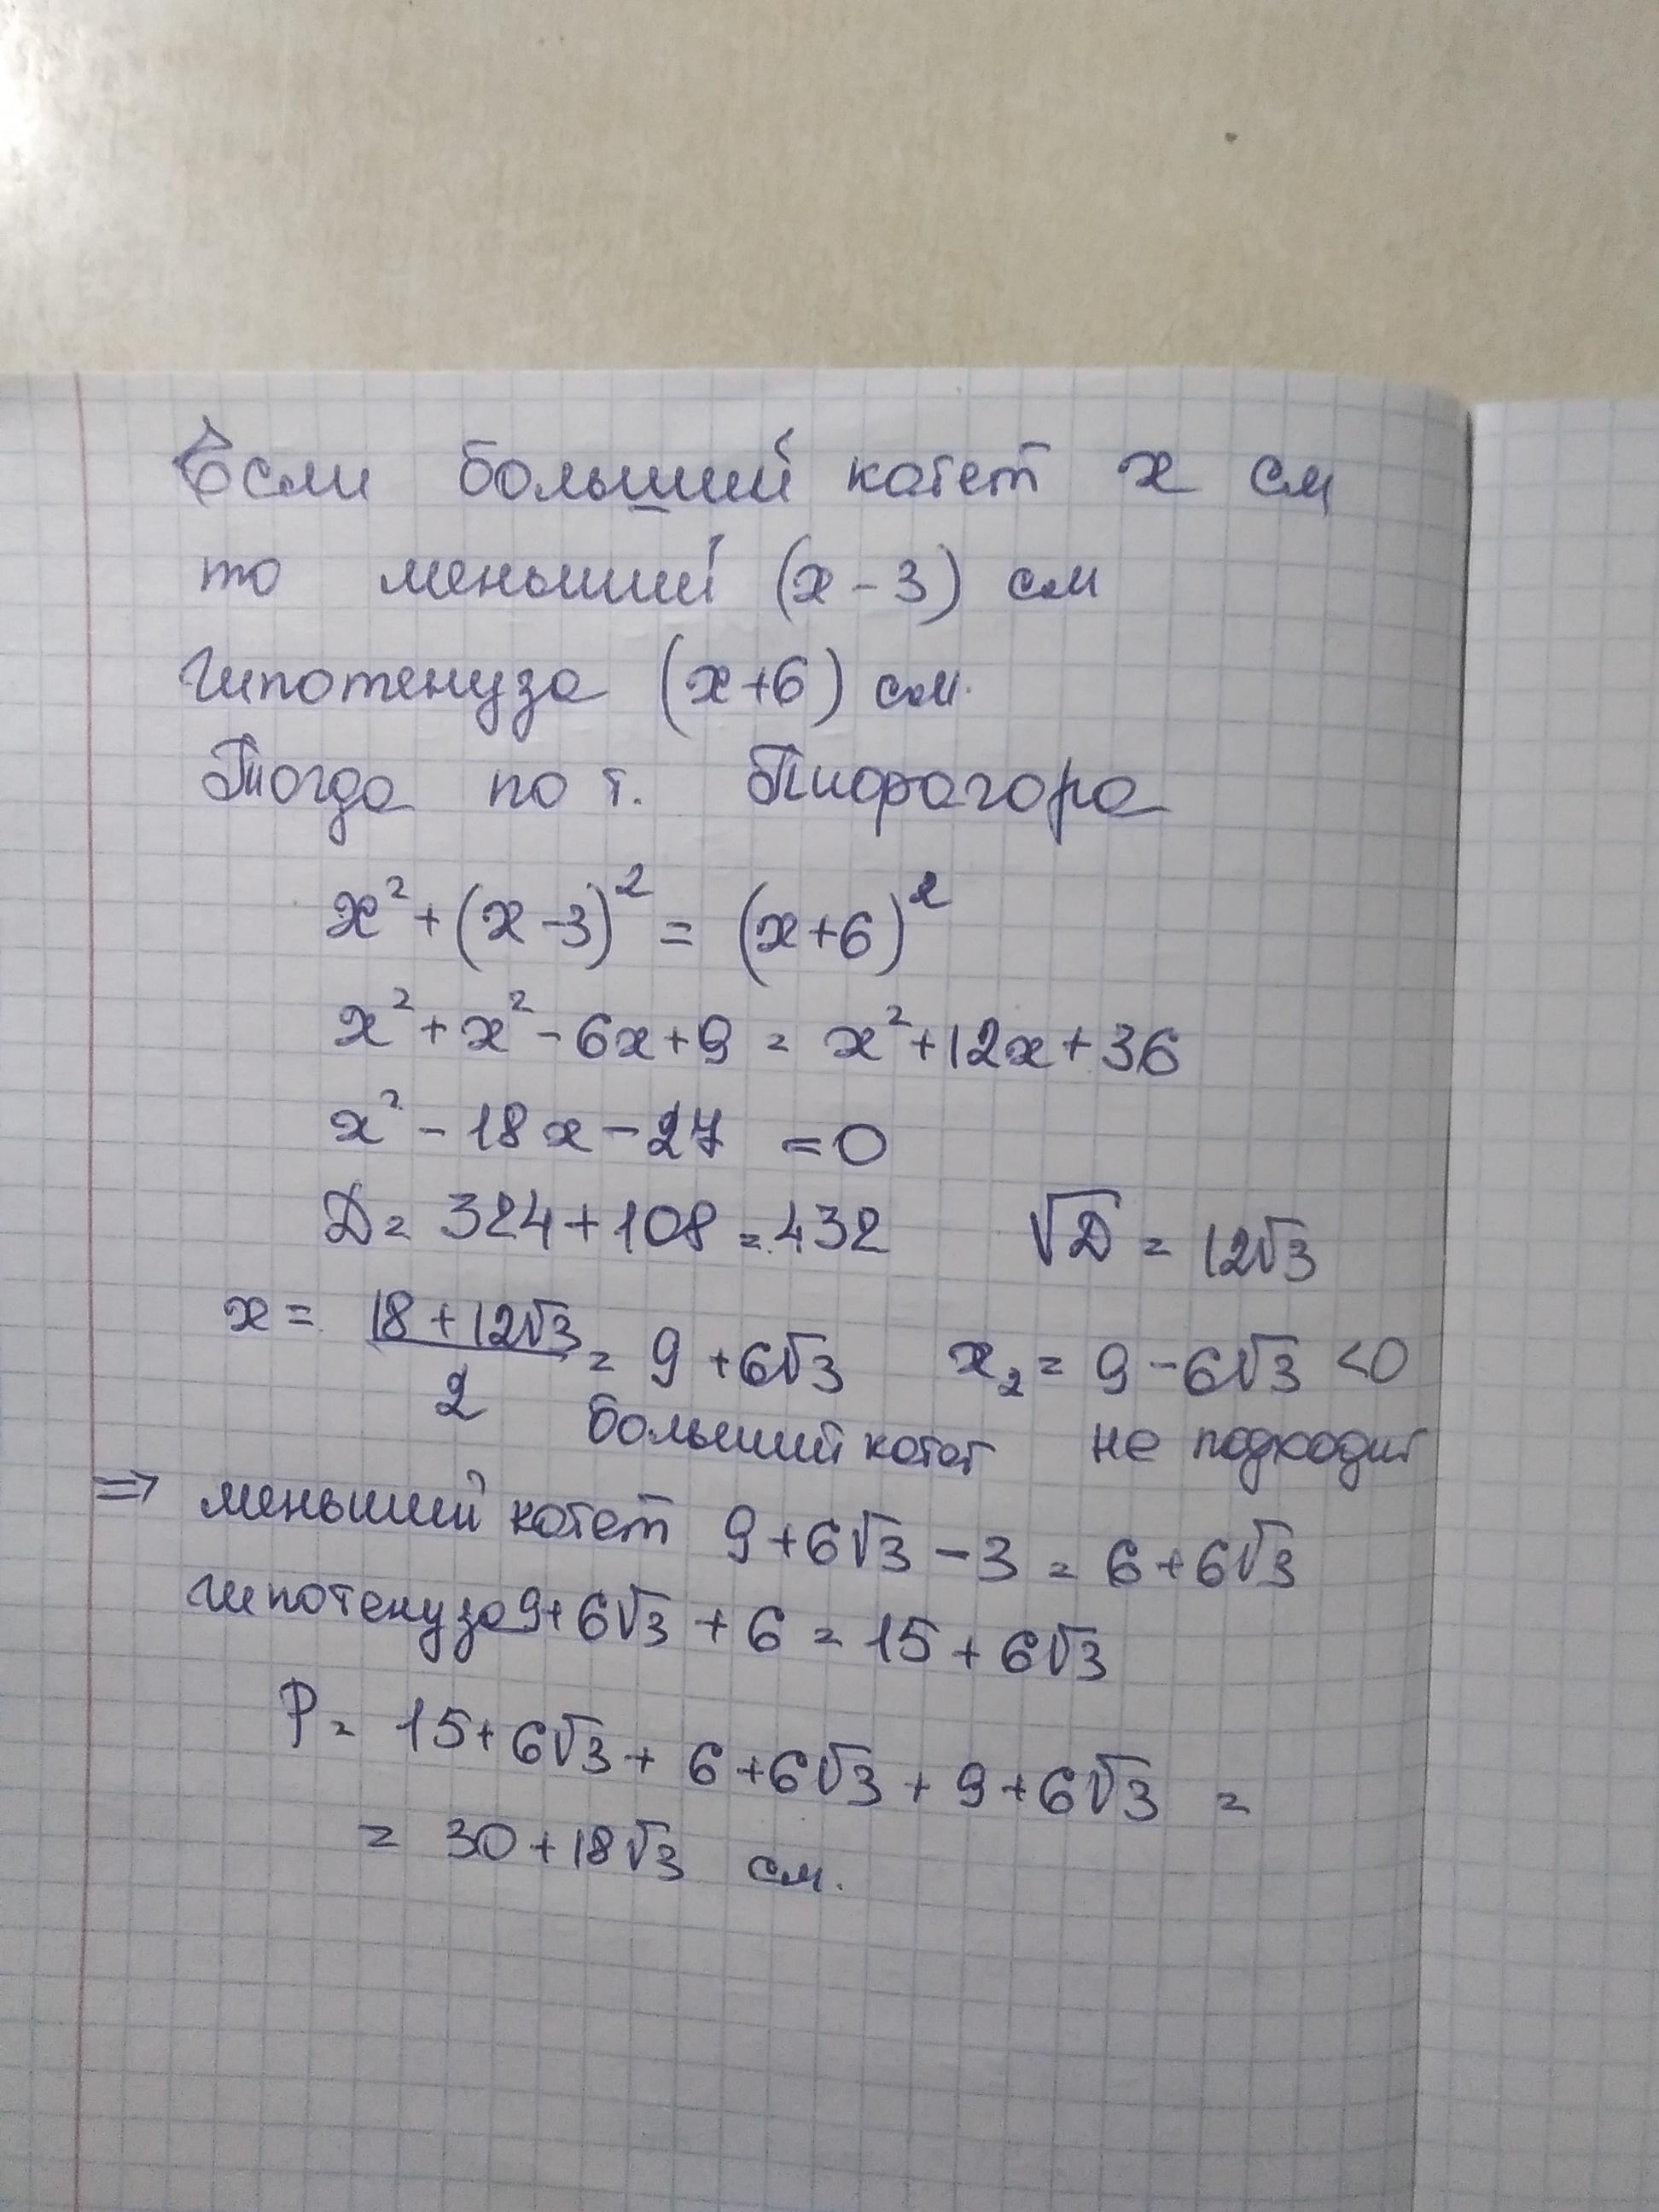 Если больший катет x см
то меньший (x - 3) см
Гипотенуза (x+6) см.
Тогда по т. Пифагора
x² + (x - 3)² = (x+6)²
x² + x² - 6x + 9 = x² + 12x + 36
x² - 18x - 27 = 0
D = 324 + 108 = 432 √D = 12√3
x = (18 + 12√3)/2 = 9 + 6√3 x₂ = 9 - 6√3 < 0
больший катет не подходит
⇒ меньший катет 9 + 6√3 - 3 = 6 + 6√3
гипотенуза 9 + 6√3 + 6 = 15 + 6√3
P = 15 + 6√3 + 6 + 6√3 + 9 + 6√3 =
= 30 + 18√3 см.